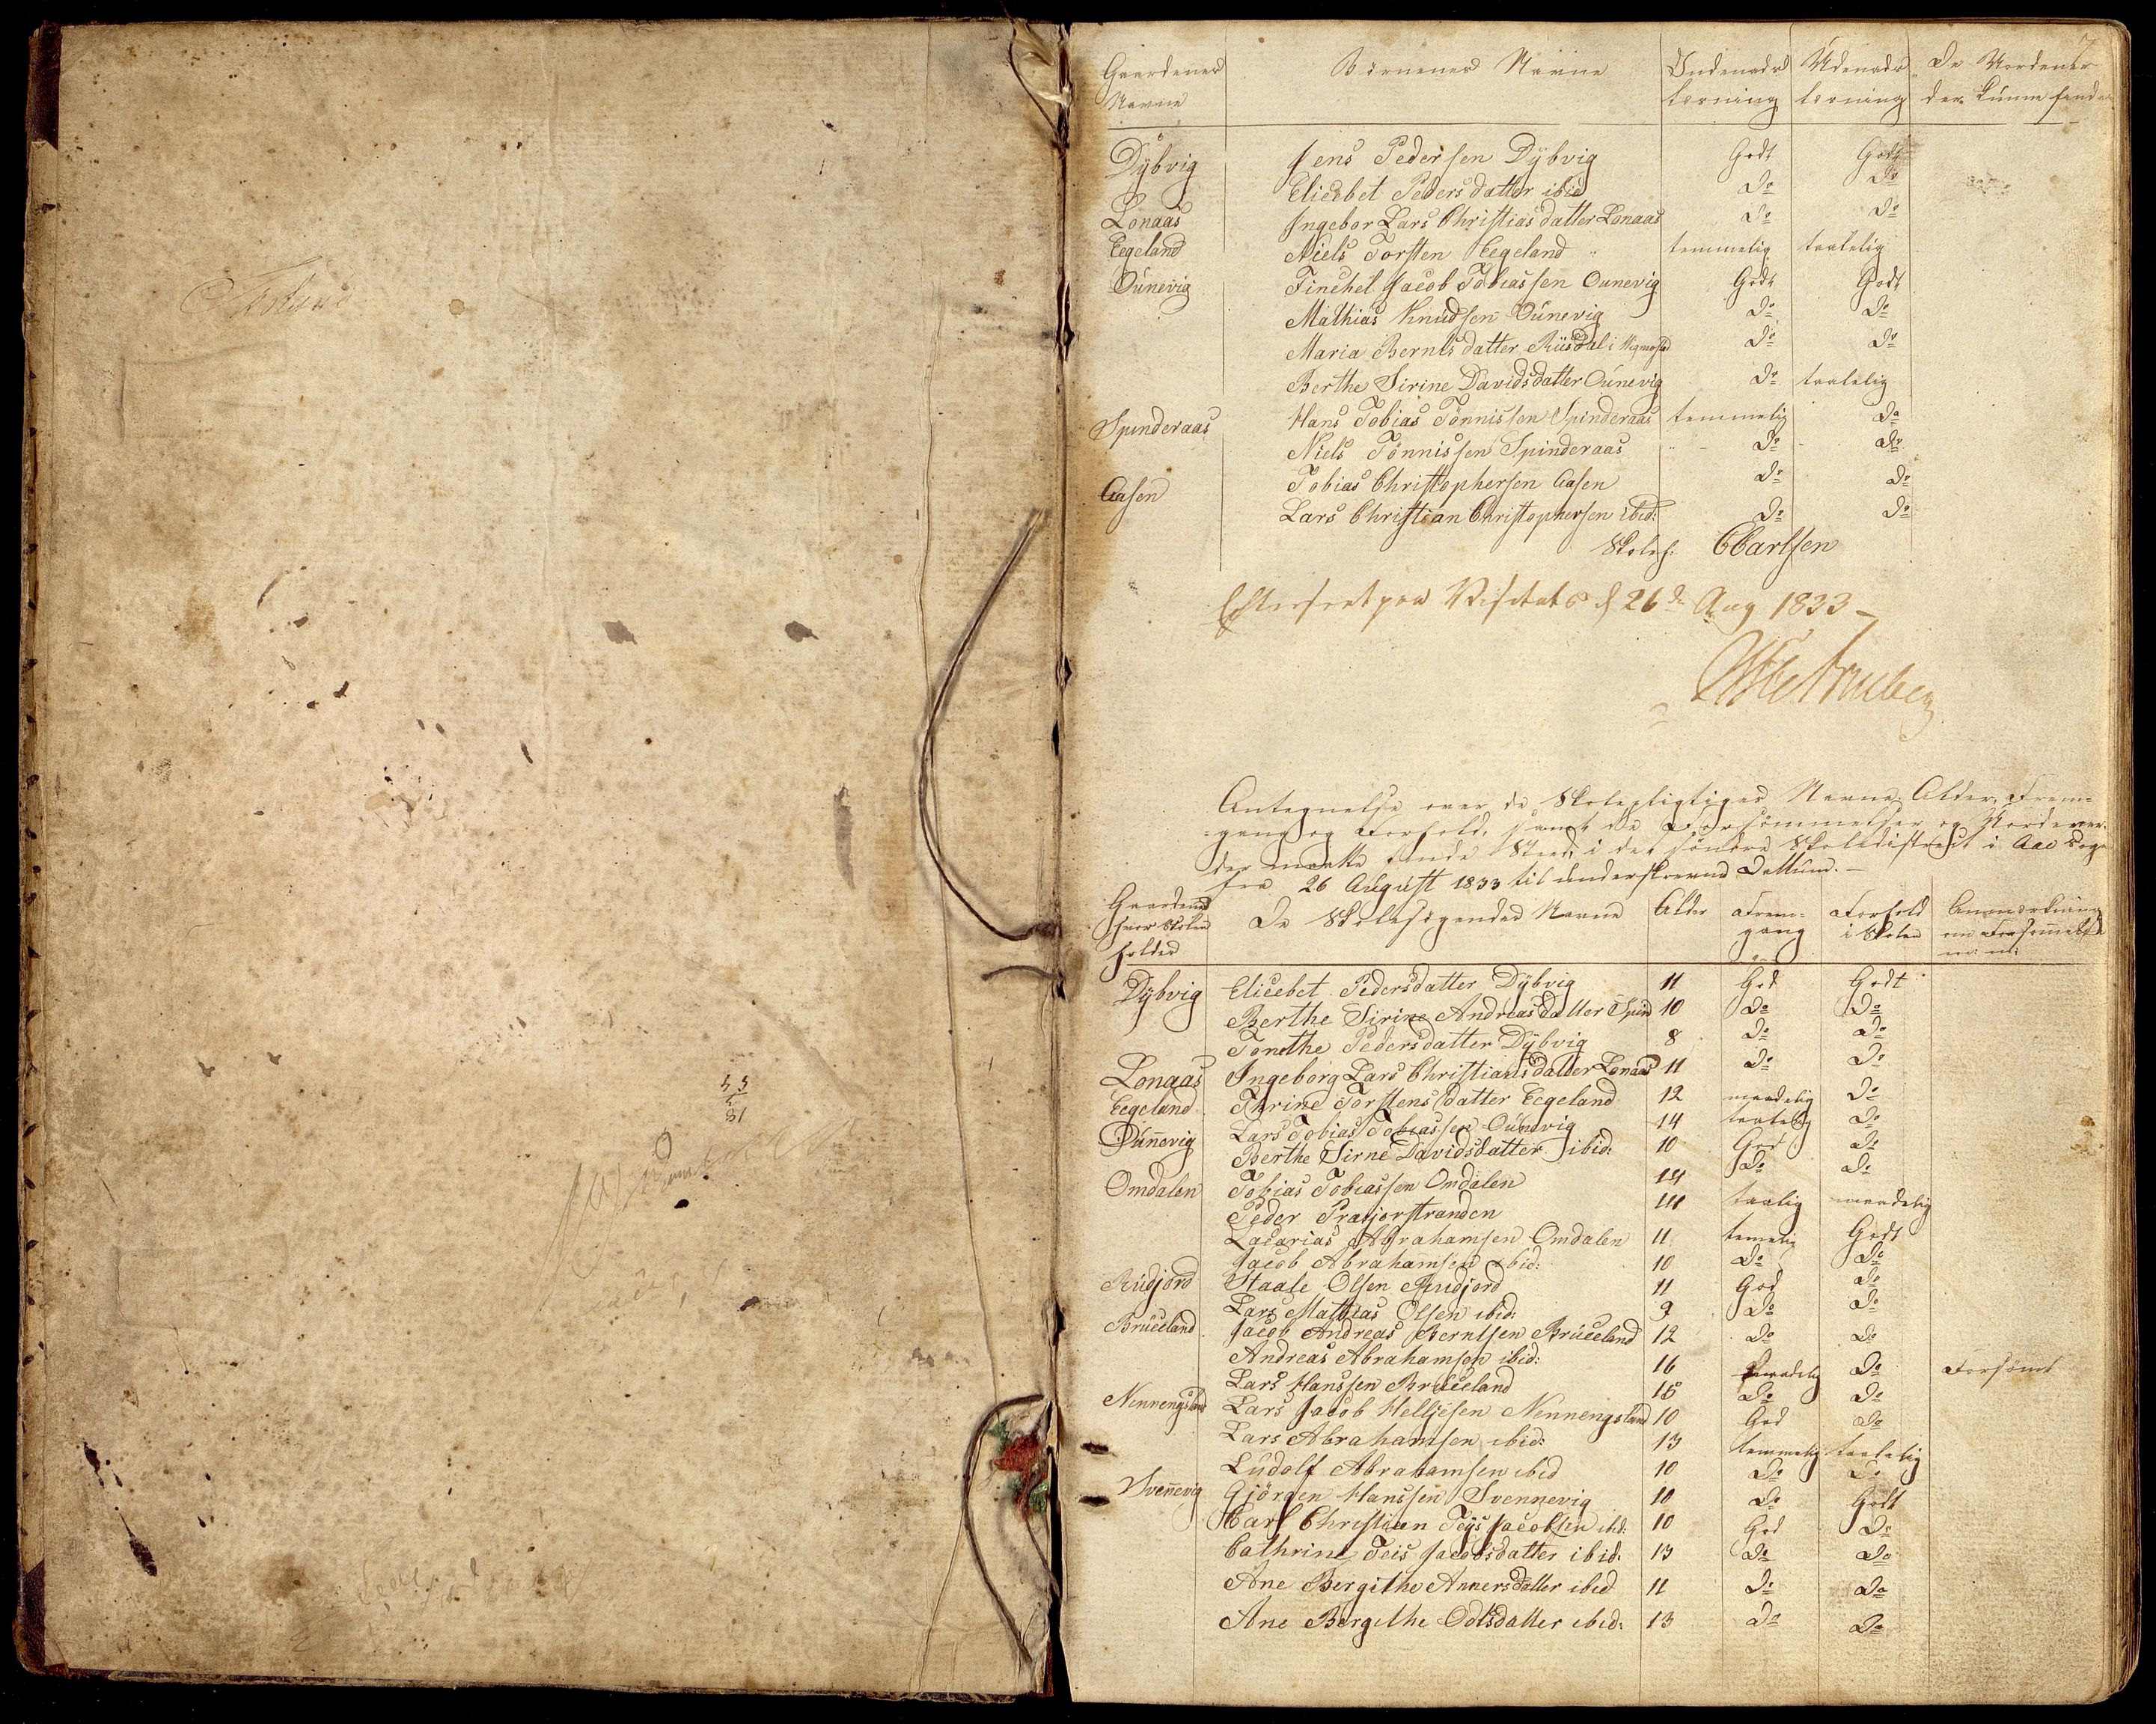 7
Gaardenes Børnenes Navne Indenads Udenads De Mordener
Navne Læsning Læsning der kunne finde
Dÿbvig Jens Pedersen Dÿbvig Godt Godt
Elicebet Pedersdatter ibid Do Do
Lonaas Ingebor Lars Christiasdatter Lonaas Do Do
Eegeland Niels Torsten Eegeland temmelig taalelig
Ounevig Finchel Jacob Tobiassen Ounevig Godt Godt
Mathias Knudsen Ounevig Do Do
Maria Berntsdatter Riisdal i Do Do
Berthe Sirine Davidsdatter Ounevig Do taalelig
Spinderaas Hans Tobias Tønnissen Spinderaas temmelig Do
Niels Tønnissen Spinderaas Do Do
Aasen Tobias Christophersen Aasen Do Do
Lars Christian Christophersen ibid: Do Do
Skoleh. CCarlsen
Efterseet paa Visitats d 26de Aug 1833 –
Antegnelse over de Skolepligtiges Navne, Alder, Frem-
-gang og Forhold, samt de Forsømmelser og
der maatte finde Sted, i det søndre Skoledistrict i Aae Sogn
fra 26 August 1833 til underskrevne Dattum. –
Gaardenes De Skolesøgendes Navne Alder Frem- Forhold Anmærkning
hvor Skolen gang i Skolen om Forsømmelse
holdes m: m:
Dÿbvig Elicebet Pedersdatter Dÿbvig 11 God Godt
Berthe Sirine Andreasdatter Spin 10 Do Do
Tonethe Pedersdatter Dÿbvig 8 Do Do
Lonaas Ingeborg Lars Christiansdatter Lonaas 11 Do Do
Eegeland Thrine Torstensdatter Eegeland 12 maadelig Do
Ounevig Lars Tobias Tobiassen Ounevig 14 taalelig Do
Berthe Sirne Davidsdatter ibid: 10 God Do
Omdalen Tobias Tobiassen Omdalen 14 Do Do
Peder Præjerstranden 14 taalig maadelig
Zacarias Abrahamsen Omdalen 11 temelig Godt
Jacob Abrahamsen ibid: 10 Do Do
Rudjord Staale Olsen Rudjord 11 God Do
Lars Mathias Olsen ibid: 9 Do Do
Brúceland Jacob Andreas Berntsen Brúceland 12 Do Do
Andreas Abrahamsen ibid: 16 maadelig Do Forsømt
Lars Hanssen Brúceland 16 Do Do
Nennengsland Lars Jacob Helljesen Nennengsland 10 God Do
Lars Abrahamsen ibid: 13 temmelig taalelig
Ludolf Abrahamsen ibid 10 Do Do
Svennevig Gjörgen Hanssen Svennevig 10 Do Godt
Carl Christian Teÿs Jacobsen ibid: 10 God Do
Cathrine Teis Jacobsdatter ibid: 13 Do Do
Ane Bergithe Annersdatter ibid 11 Do Do
Ane Bergithe Odtsdatter ibid: 13 Do Do